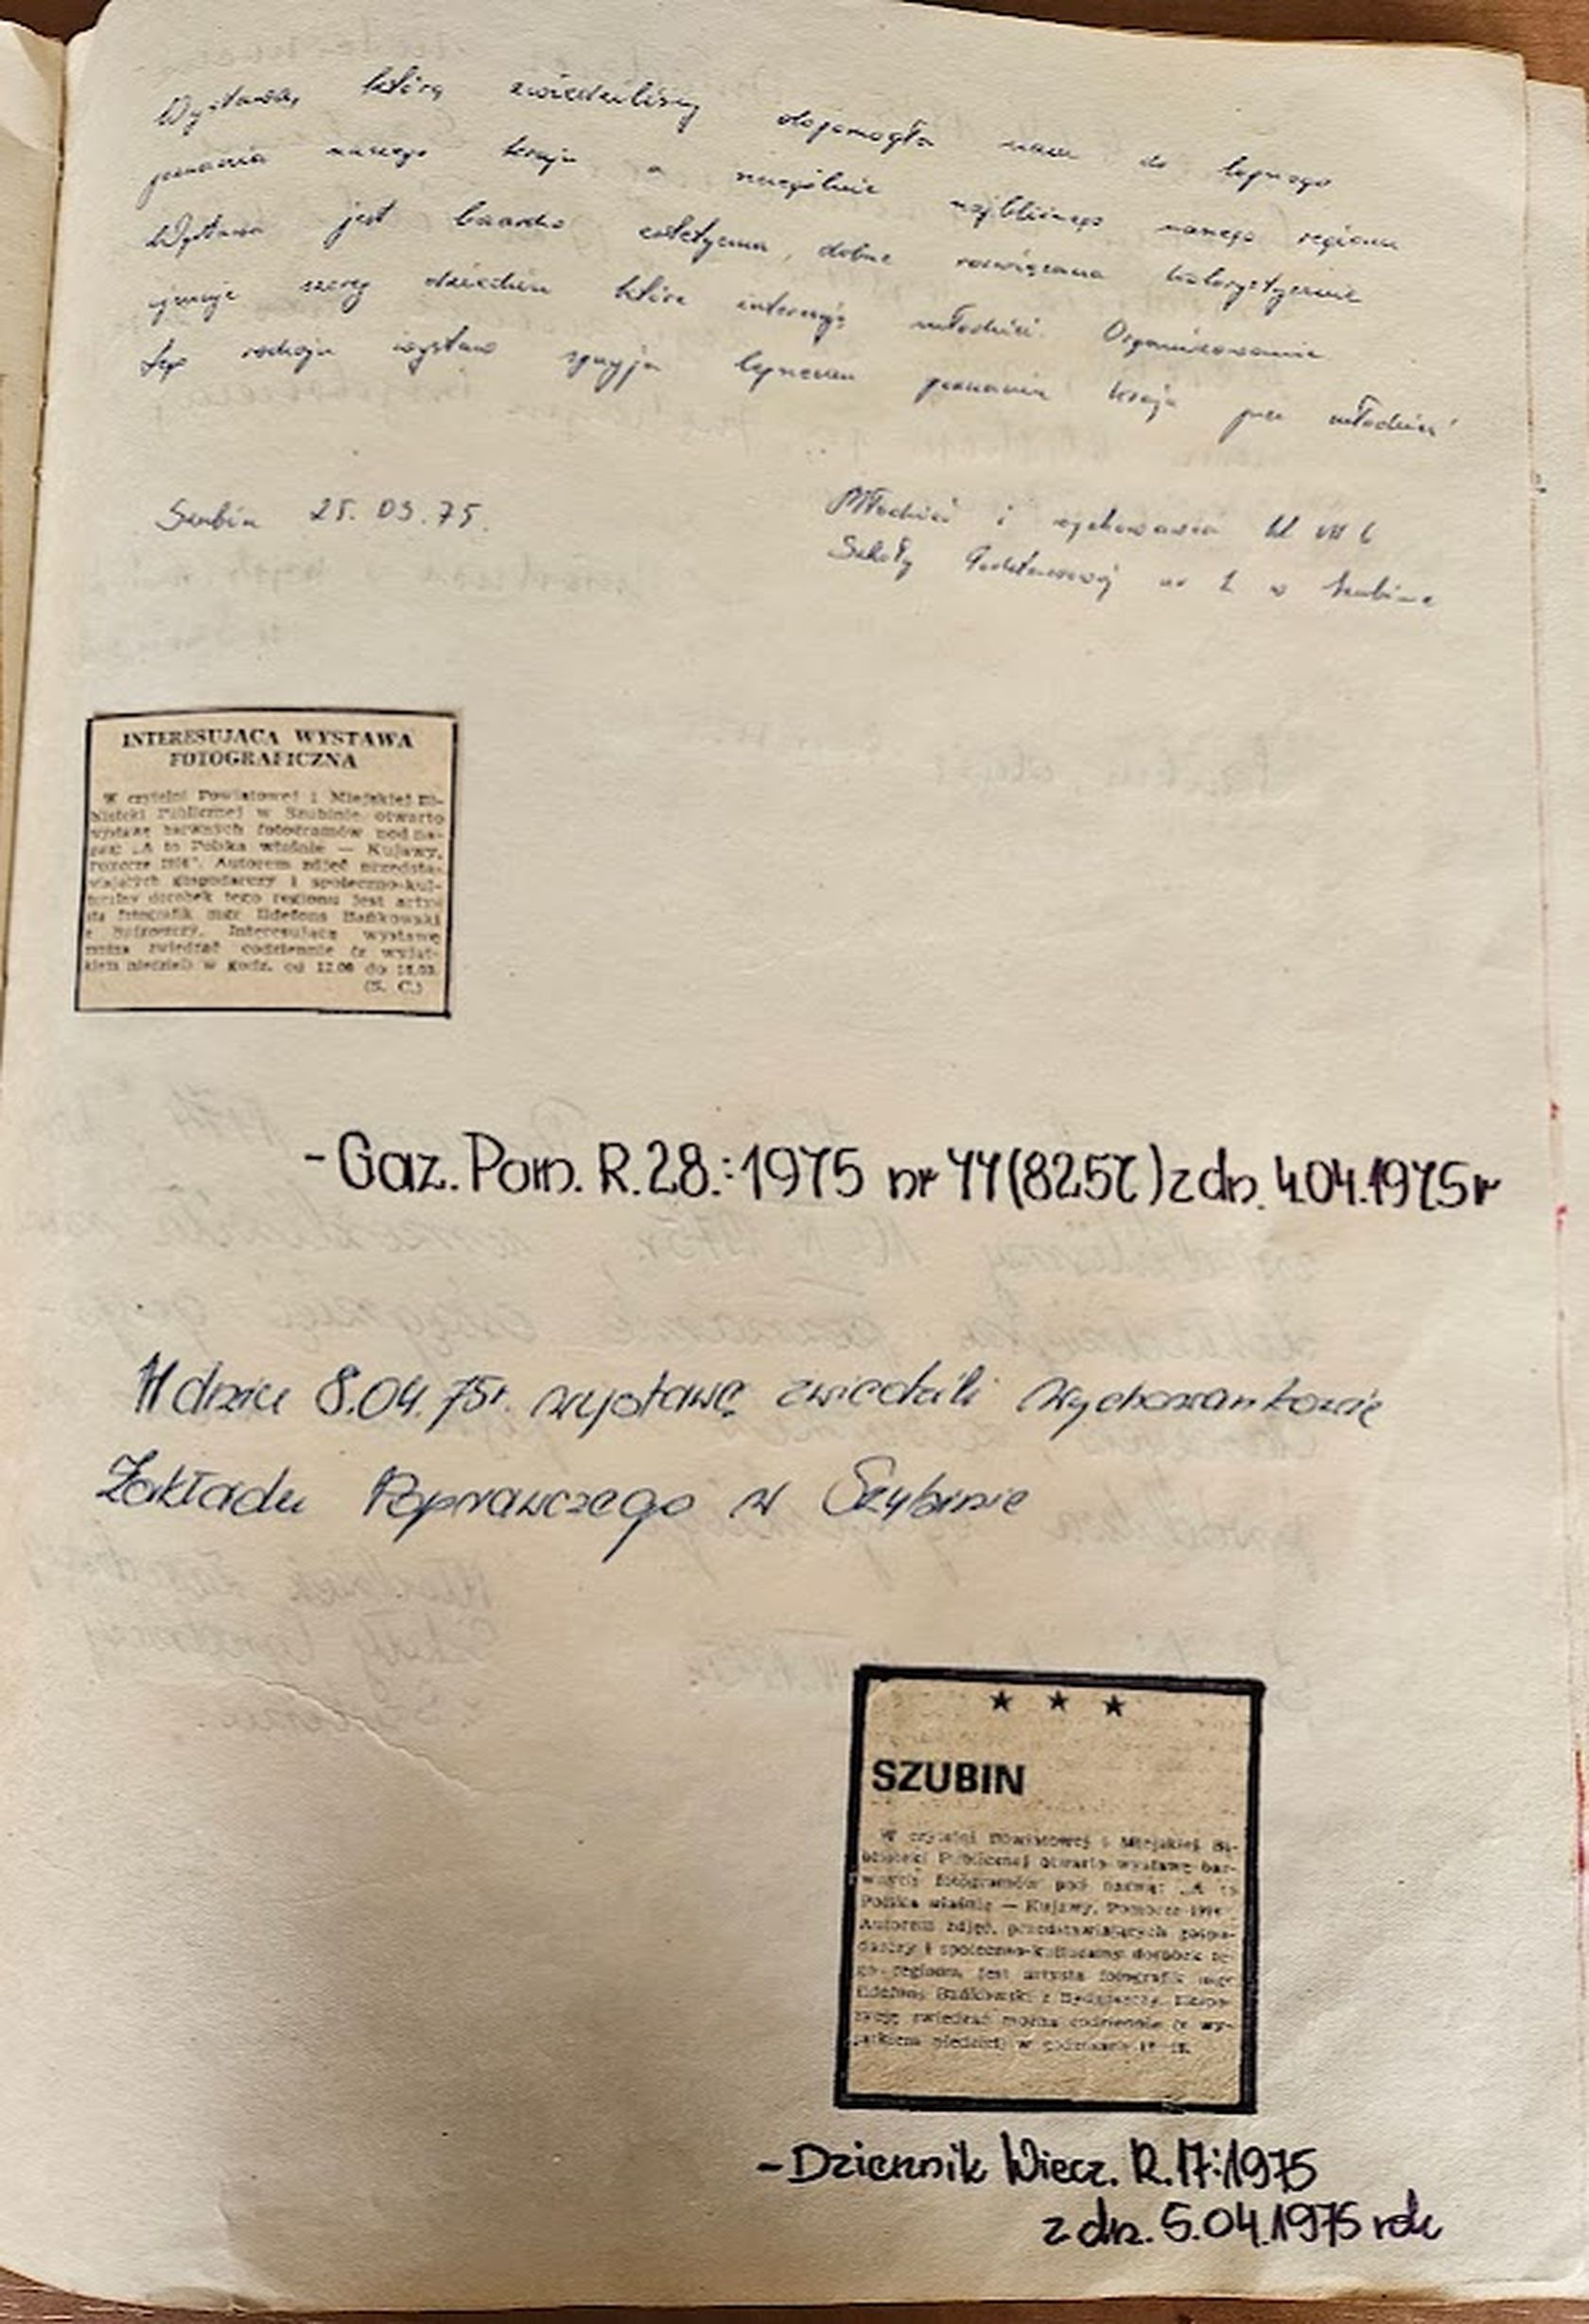 Wystawa, którą zwiedziliśmy dopomogła nam do lepszego
poznania naszego kraju a szczególnie najbliższego naszego regionu
Wystawa jest bardzo estetyczna, dobrze rozwiązana kolorystycznie
ujmuje szereg dziedzin które interesują młodzież. Organizowanie
tego rodzaju wystaw sprzyja lepszemu poznaniu kraju przez młodzież
Szubin 25.03.75.
Młodzież i wychowawca kl VII b
Szkoły Podstawowej nr 1 w Szubinie
INTERESUJĄCA WYSTAWA
FOTOGRAFICZNA
W czytelni Powiatowej i Miejskiej Bi-
blioteki Publicznej w Szubinie otwarto
wystawę barwnych fotogramów pod na-
zwą: „A to Polska właśnie — Kujawy,
Pomorze 1974". Autorem zdjęć przedsta-
wiających gospodarczy i społeczno-kul-
turalny dorobek tego regionu jest arty-
sta fotografik mgr Ildefons Bańkowski
z Bydgoszczy. Interesującą wystawę
można zwiedzać codziennie (z wyjąt-
kiem niedziel) w godz. od 12.00 do 18.00.
(S. C.)
- Gaz. Pom. R.28.:1975 nr 77(8257) z dn. 4.04.1975r
W dniu 8.04.75r. wystawę zwiedzili wychowankowie
Zakładu Poprawczego w Szubinie
★ ★ ★
SZUBIN
W czytelni Powiatowej i Miejskiej Bi-
blioteki Publicznej otwarto wystawę bar-
wnych fotogramów pod nazwą: „A to
Polska właśnie — Kujawy, Pomorze 1974".
Autorem zdjęć, przedstawiających gospo-
darczy i społeczno-kulturalny dorobek te-
go regionu, jest artysta fotografik mgr
Ildefons Bańkowski z Bydgoszczy. Ekspo-
zycję zwiedzać można codziennie (z wy-
jątkiem niedziel) w godzinach
- Dziennik Wiecz. R.17:1975
z dn. 5.04.1975 rok